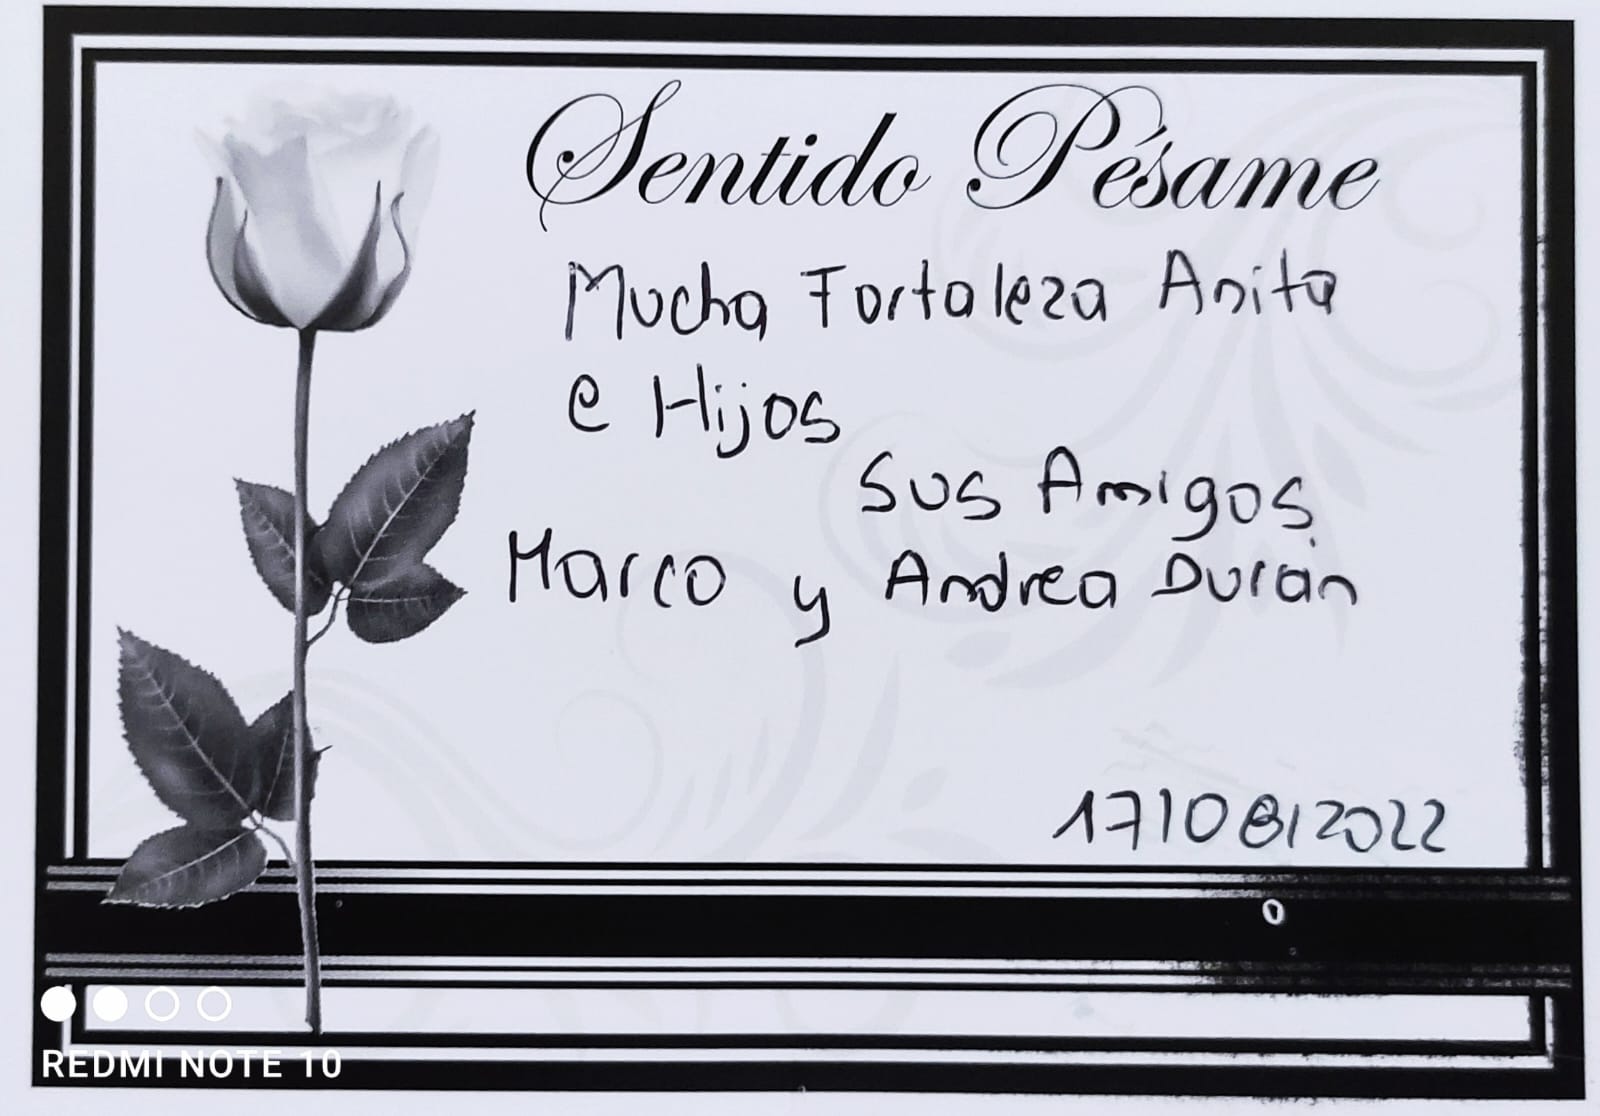 Sentido Pésame
Mucha Fortaleza Anita
e Hijos
Sus Amigos
Marco y Andrea Durán
17/08/2022
REDMI NOTE 10